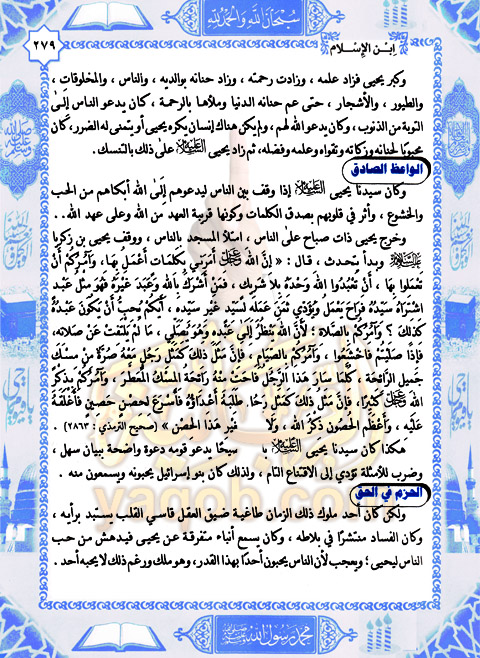 سبحان الله والحمد لله
ابن الإسلام
٢٧٩
وكبر يحيى فزاد علمه ، وزادت رحمته ، وزاد حنانه بوالديه ، والناس ، والمخلوقات ،
والطيور ، والأشجار ، حتى عم حنانه الدنيا وملأها بالرحمة ، كان يدعو الناس إلى
التوبة من الذنوب ، وكان يدعو الله لهم ، ولم يكن هناك إنسان يكره يحيى أو يتمنى له الضرر، كان
محبوبًا لحنانه وزكاته وتقواه وعلمه وفضله، ثم زاد يحيى عليه السلام على ذلك بالتنسك.
الواعظ الصادق
وكان سيدنا يحيى عليه السلام إذا وقف بين الناس ليدعوهم إلى الله أبكاهم من الحب
والخشوع ، وأثر في قلوبهم بصدق الكلمات وكونها قريبة العهد من الله وعلى عهد الله . .
وخرج يحيى ذات صباح على الناس ، امتلأ المسجد بالناس ، ووقف يحيى بن زكريا
عليه السلام وبدأ يتحدث ، قال : « إِنَّ اللهَ عز وجل أَمَرَنِي بِكَلِمَاتٍ أَعْمَلُ بِهَا، وَآمُرُكُمْ أَنْ
تَعْمَلُوا بِهَا ، أَنْ تَعْبُدُوا اللهَ وَحْدَهُ بِلَا شَرِيكٍ ، فَمَنْ أَشْرَكَ بِاللهِ وَعَبَدَ غَيْرَهُ فَهُوَ مِثْلُ عَبْدٍ
اشْتَرَاهُ سَيِّدُهُ فَرَاحَ يَعْمَلُ وَيُؤَدِّي ثَمَنَ عَمَلِهِ لِسَيِّدٍ غَيْرِ سَيِّدِهِ ، أَيُّكُمْ يُحِبُّ أَنْ يَكُونَ عَبْدُهُ
كَذَلِكَ ؟ وَآمُرُكُمْ بِالصَّلَاةِ ؛ لِأَنَّ اللهَ يَنْظُرُ إِلَى عَبْدِهِ وَهُوَ يُصَلِّي ، مَا لَمْ يَلْتَفِتْ عَنْ صَلَاتِهِ،
فَإِذَا صَلَّيْتُمْ فَاخْشَعُوا ، وَآمُرُكُمْ بِالصِّيَامِ ، فَإِنَّ مَثَلَ ذَلِكَ كَمَثَلِ رَجُلٍ مَعَهُ صُرَّةٌ مِنْ مِسْكٍ
جَمِيلِ الرَّائِحَةِ ، كُلَّمَا سَارَ هَذَا الرَّجُلُ فَاحَتْ مِنْهُ رَائِحَةُ الْمِسْكِ الْمُعَطَّرِ ، وَآمُرُكُمْ بِذِكْرِ
اللهِ عز وجل كَثِيرًا، فَإِنَّ مَثَلَ ذَلِكَ كَمَثَلِ رَجُلٍ طَلَبَهُ أَعْدَاؤُهُ فَأَسْرَعَ لِحِصْنٍ حَصِينٍ فَأَغْلَقَهُ
عَلَيْهِ ، وَأَعْظَمُ الْحُصُونِ ذِكْرُ اللهِ ، وَلَا غَيْرَ هَذَا الْحِصْنِ » (صحيح الترمذي : ٢٨٦٣) .
هكذا كان سيدنا يحيى عليه السلام يا سيحًا يدعو قومه دعوة واضحة ببيان سهل ،
وضرب للأمثلة تؤدي إلى الاقتناع التام ، ولذلك كان بنو إسرائيل يحبونه ويسمعون منه .
الحزم في الحق
ولكن كان أحد ملوك ذلك الزمان طاغية ضيق العقل قاسي القلب يستبد برأيه ،
وكان الفساد منتشرًا في بلاطه ، وكان يسمع أنباء متفرقة عن يحيى فيدهش من حب
الناس ليحيى ؛ ويعجب لأن الناس يحبون أحدًا بهذا القدر، وهو ملك ورغم ذلك لا يحبه أحد .
yaqob.com
محمد رسول الله